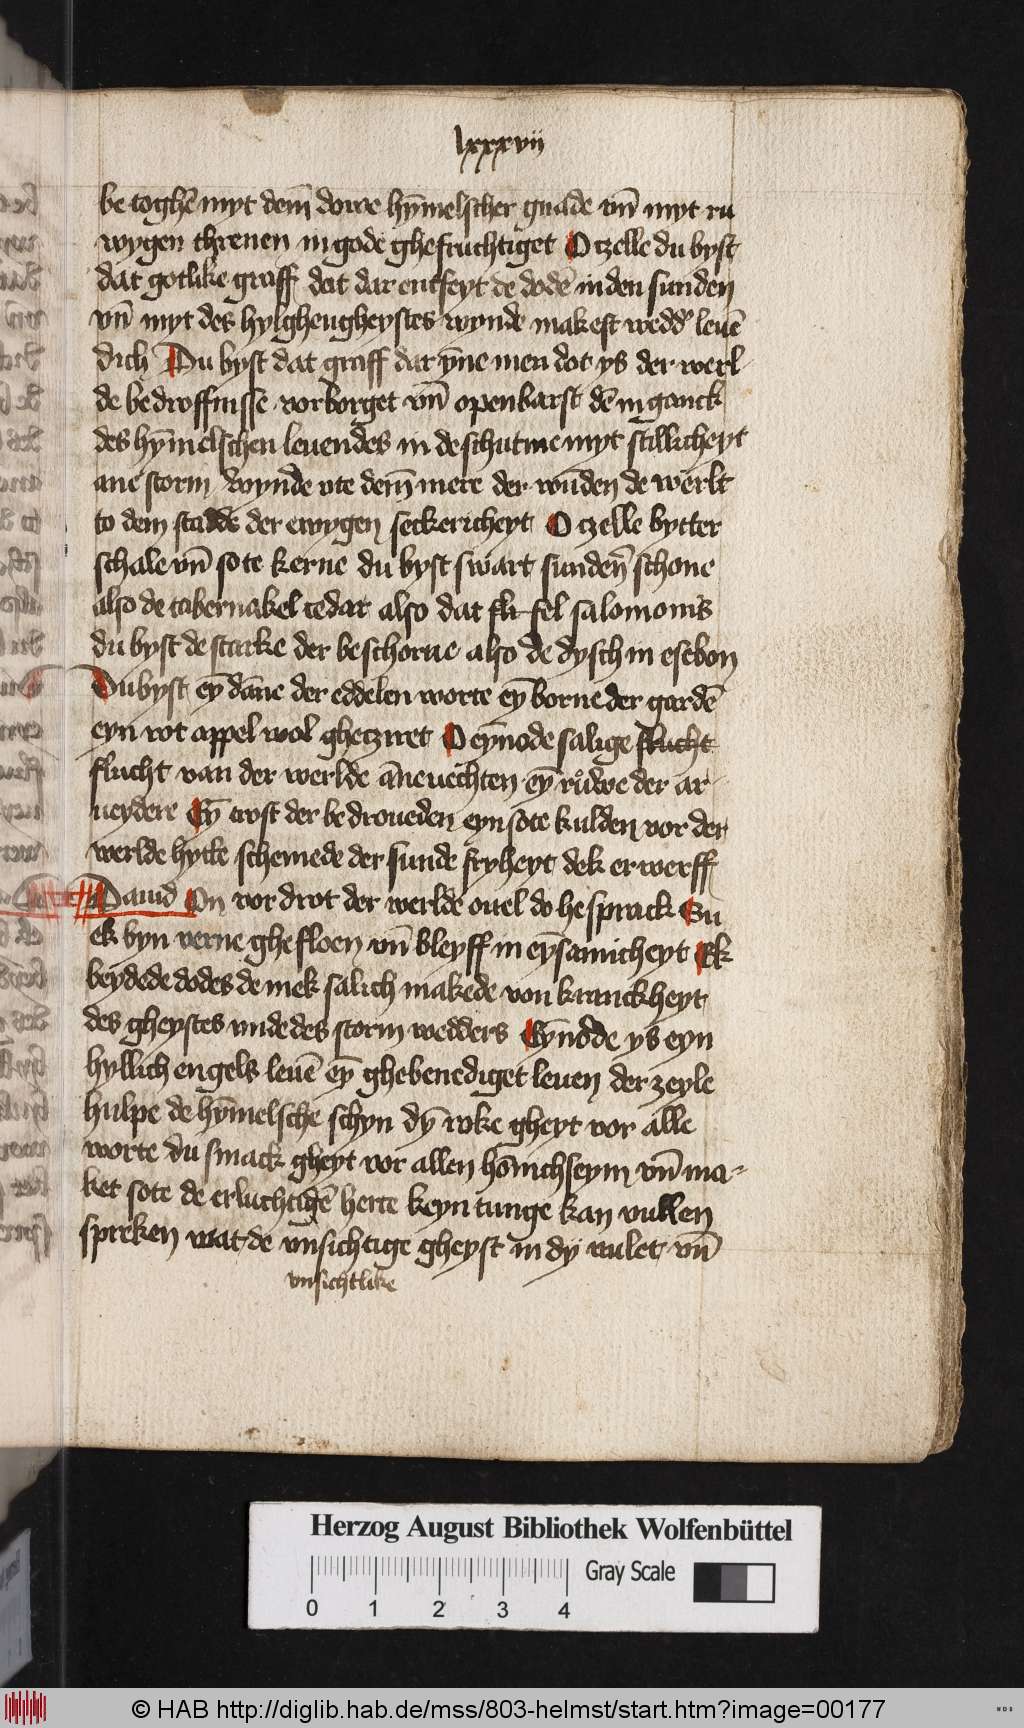 lxxxvii
be toghē myt dem̄ dowe hȳmelscher gnade vn̄ myt ru
wygen threnen in gode ghefruchtiget O tzelle du byst
dat gotlike graff dat dar entfeyt de dodē in den sunden
vn̄ myt des hylghengheystes wynde makest wedd' leuē
dich Du byst dat graff dar ȳne men dot ys der werl
de bedroffnisse vorborget vn̄ openbarst dē inganck
des hȳmelschen leuendes in de schutme myt stillicheyt
ane storm wynde vte dem̄ mere der wūden de werlt
to dem stadde der ewygen seckericheyt O tzelle bytter
schale vn̄ sote kerne du byst swart sunden̄ schone
also de tabernakel cedar also dat fel salomonis
du byst de starke der beschorne also de dysch in esebon
Du byst eȳ dāne der eddelen worte eȳ borne der gardē
eyn rot appel wol ghetzyret O eȳnode salige flucht
flucht van der werlde āne vechten eȳ růwe der ar
ueydere Eȳ trost der bedroueden eyn sote kulden vor der
werlde hytte schemede der sunde fryheyt dek erwerff
Dauid On vordrot der werlde ouel do he sprack Su
ek byn verne ghefloen vn̄ bleyff in eȳsamicheyt Ek
beydede dodes de mek salich makede von kranckheyt
des gheystes vnde des storm wedders Eȳnode ys eyn
hyllich engels leuē eȳ ghebenediget leuen der zeyle
hulpe de hȳmelsche schyn dȳ roke gheyt vor alle
worte du smack gheyt vor allen hōnichseym vn̄ ma-
ket sote de erluchtigē herte keyn tunge kan vullen
spreken wat de vnsichtige gheyst in dy wulet vn̄
vnsichtlike
Herzog August Bibliothek Wolfenbüttel
Gray Scale
0 1 2 3 4
© HAB http://diglib.hab.de/mss/803-helmst/start.htm?image=00177